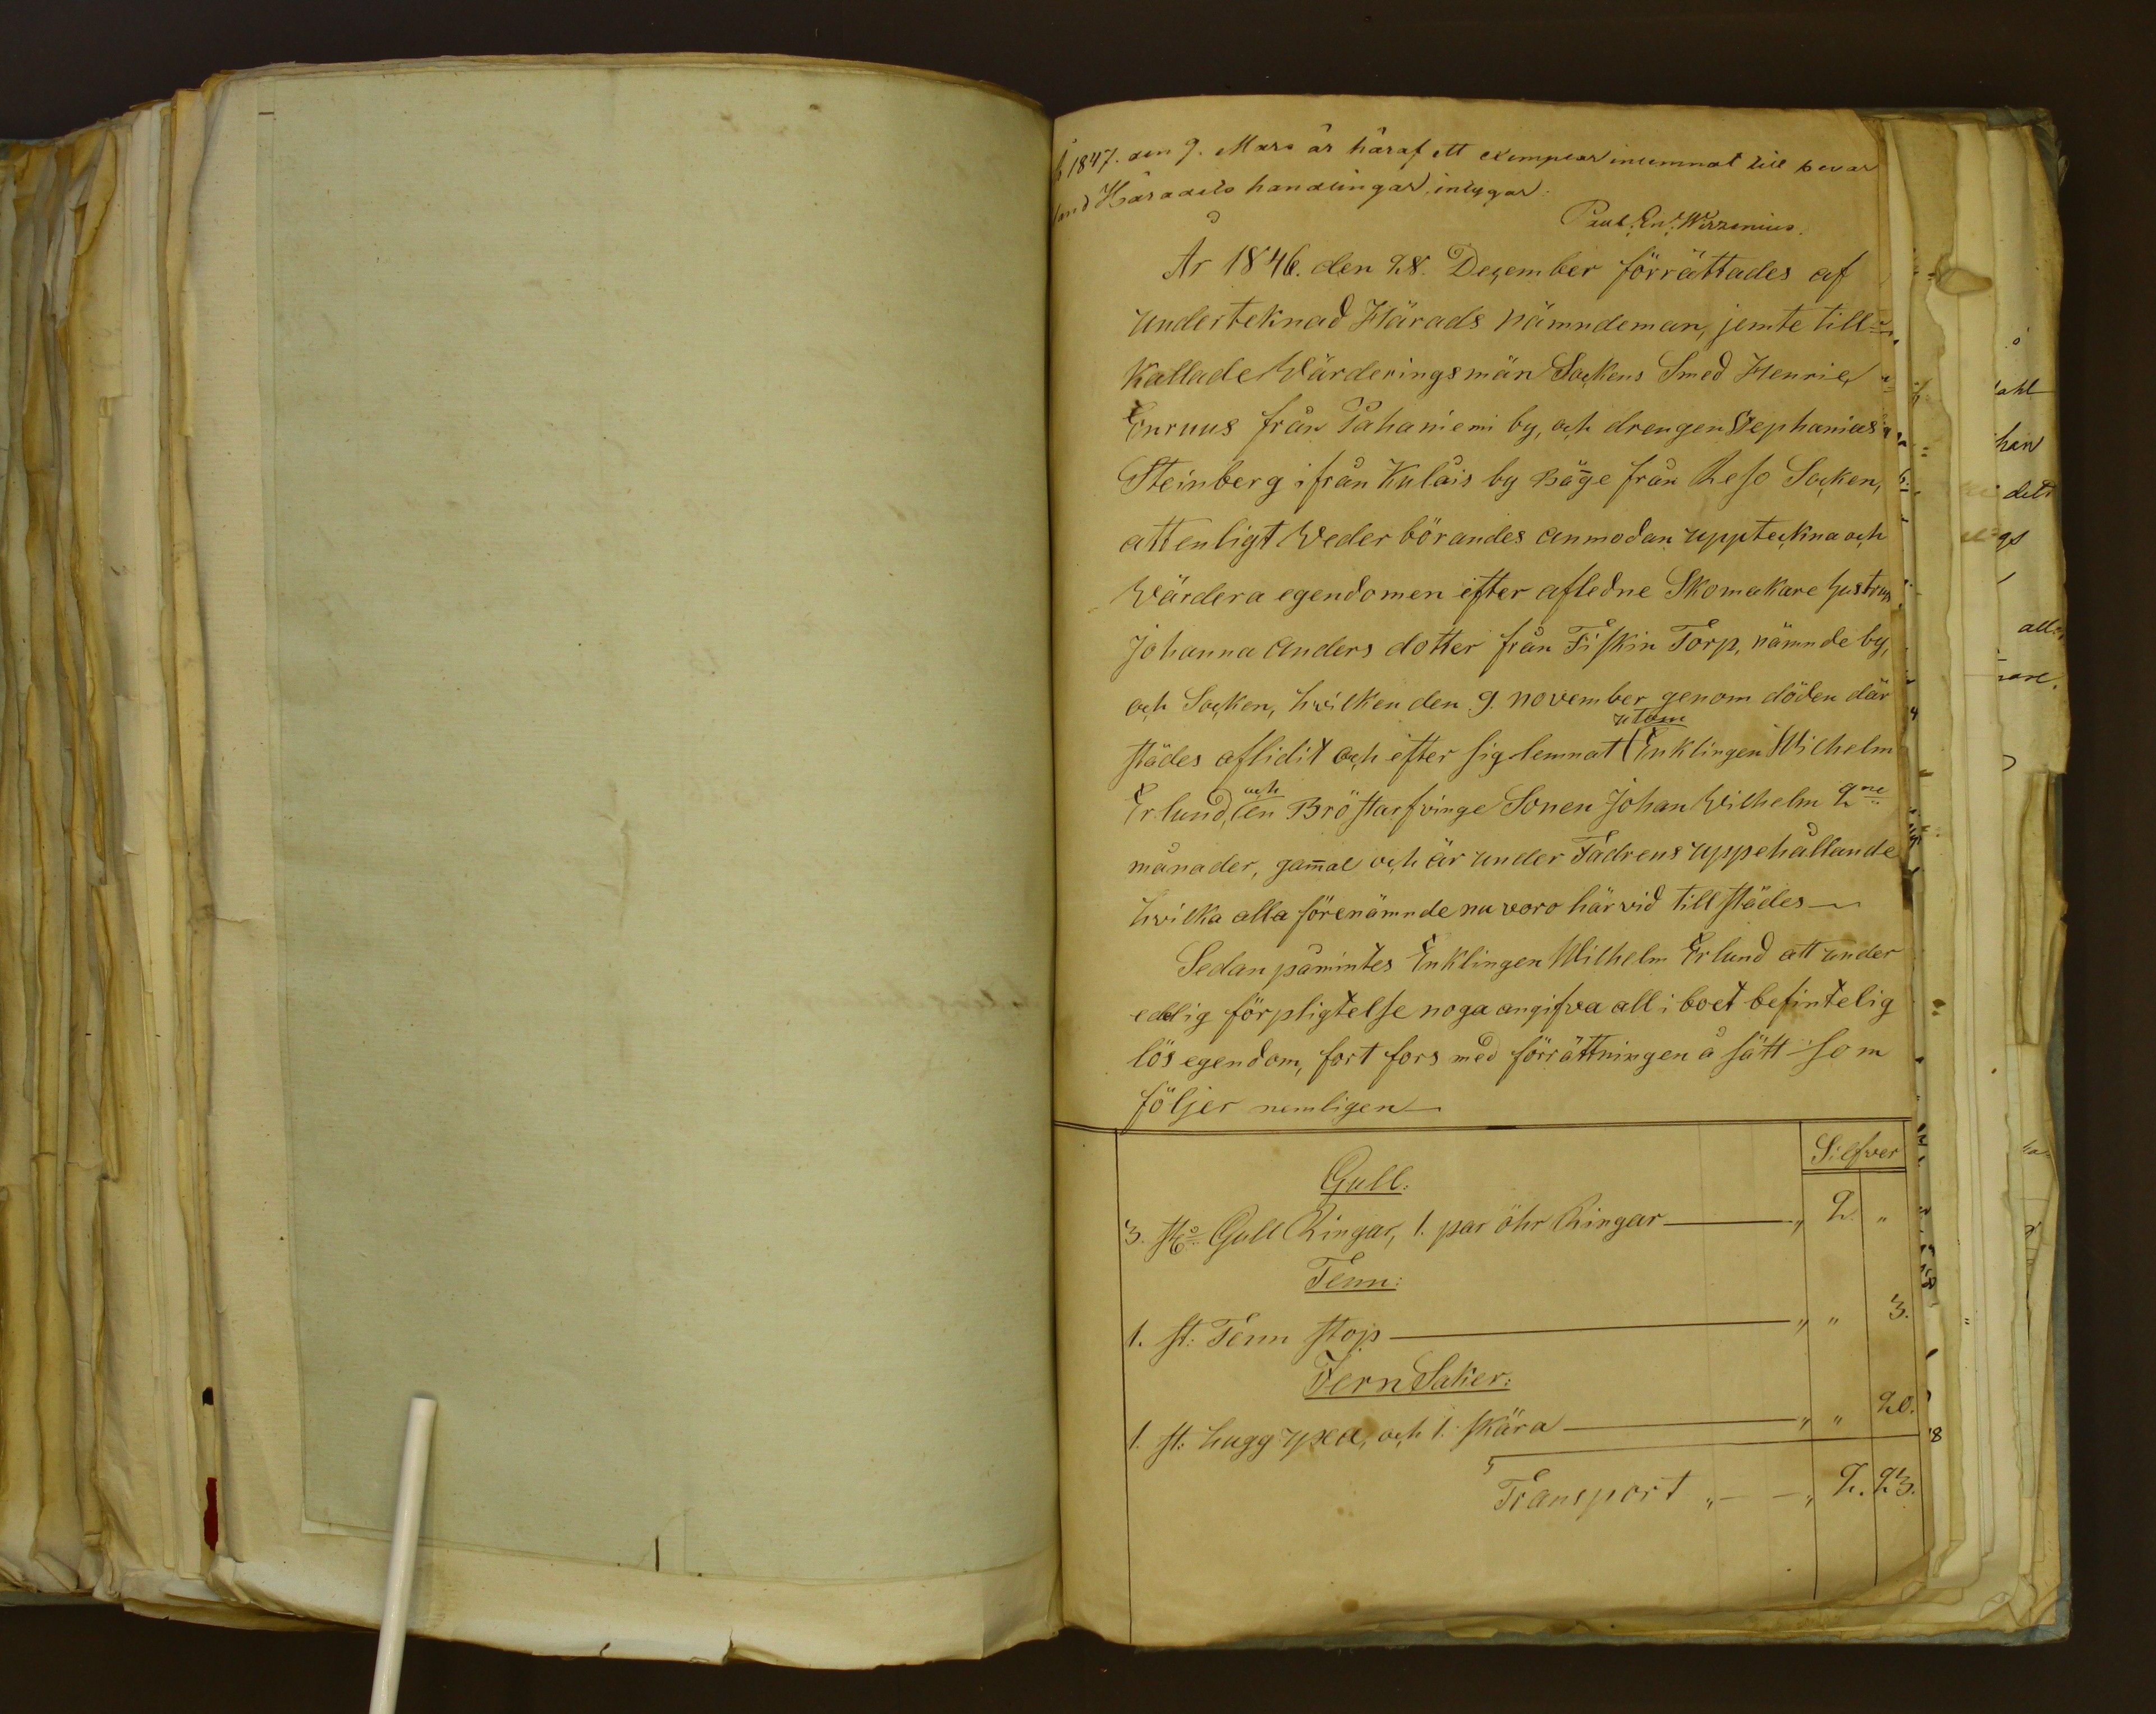 År 1847. den 9. Mars är häraf ett exemplar inlemnat till bevar
land Häradets handlingar, intygar
Paul. En. Wirzenius.
År 1846. den 28. December förrättades af
underteknad Härads Nämndeman, jemte till=
kallade Wärderingsmän Sockens Smed Henric
Enruus från Pahaniemi by, och drengen Stephanias
Steinberg ifrån Kulais by Bäge från Reso Socken,
att enligt Wederbörandes anmodan uppteckna och
Wärdera egendomen efter afledne Skomakare hustrun
Johanna Anders dotter från Fiskin Torp, nämnde by,
och Socken, hvilken den 9. november genom döden där
utom
städes aflidit och efter sig lemnat Enklingen Wilhelm
och
Erlund, en Bröstarfvinge Sonen Johan Wilhelm 2ne
månader, gam̄al och är under Fadrens uppehållande
hvilka alla förenämnde nu voro härvid tillstädes —
Sedan påmintes Enklingen Wilhelm Erlund att under
edelig förpligtelse noga angifva all i boet befintelig
lös egendom, fort fors med förrättningen å sätt som
följer nemligen —
Silfver
Gull:
3. st: Gull Ringar, 1. par öhr Ringar — „ 2. „
Tenn:
1. st: Tenn stop — „ „ 3.
Jern Saker:
1. st: hugg yxa, och 1. skära — „ „ 20.
Transport „ — — „ 2. 23.